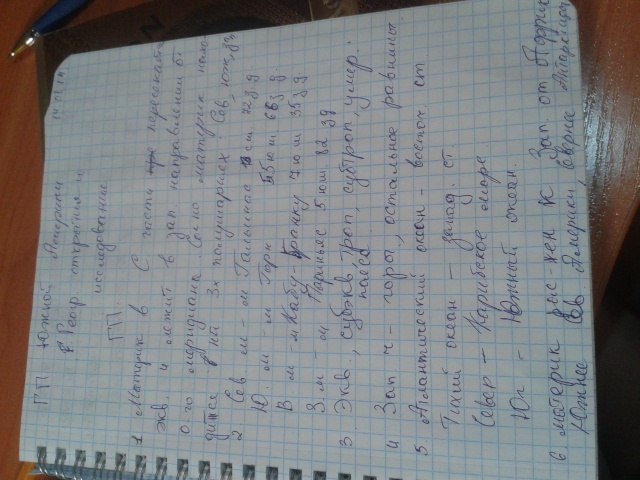 14.01.14
ГП Южной Америки
Геогр открытия и
исследование
ГП.
1 Материк в С части пересекается
экв. и лежит в зап. направлении от
0-го меридиана. Со-но материк нахо-
дится на 3х полушариях Сев, Юж, Зап
2 Сев м - м Гальинас 12 сш 72 зд
Ю. м - м Горн 55 юш 68 зд
В м м Кабу-Бранку 7 юш 35 зд
З. м - м Париньяс 5 юш 82 зд
3. Экв, субэкв, троп, субтроп, умер.
пояса
4 Зап ч - горы, остальное равнины
5 Атлантический океан - восточ. ст
Тихий океан - запад. ст.
Север - Карибское море.
Юг - Южный океан.
6 материк рас-жен к Зап. от Африки
Южнее Сев. Америки, Севернее Антарктиды